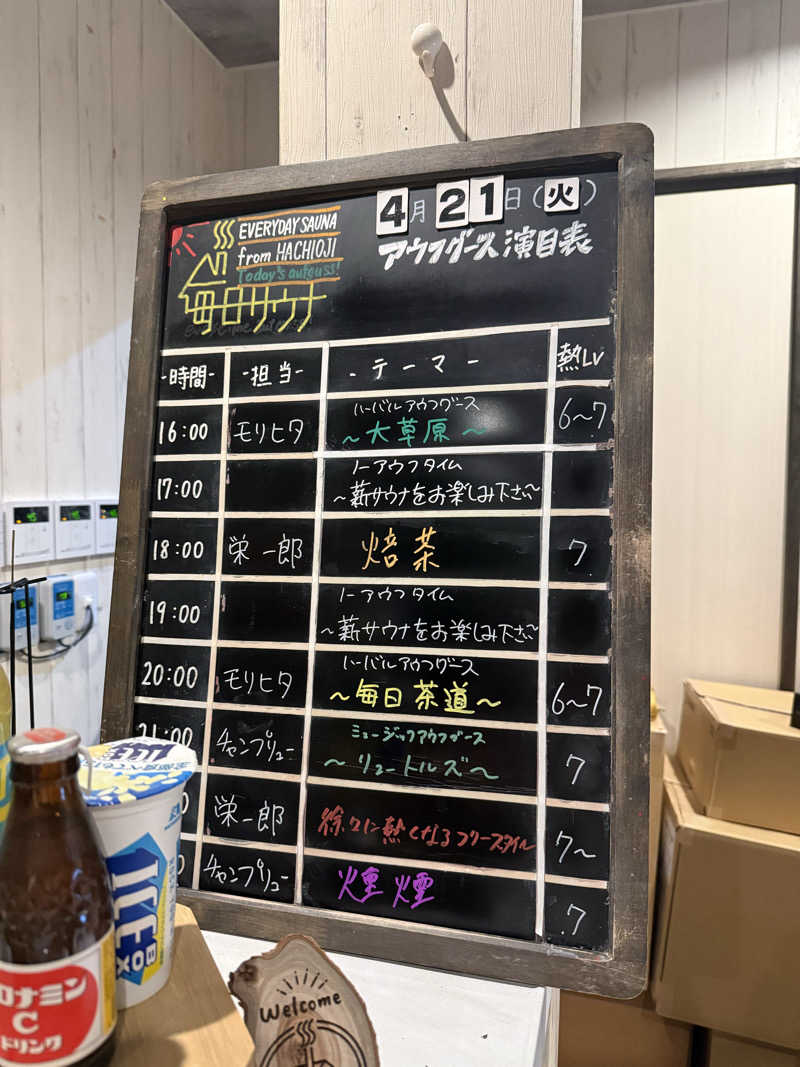 EVERYDAY SAUNA
from HACHIOJI
Today's aufguss!
毎日サウナ
4月21日(火)
アウフグース演目表
-時間- -担当- -テーマ- 熱Lv
16:00 モリヒタ ハーバルアウフグース 6~7
~大草原~
17:00 ノーアウフタイム
~薪サウナをお楽しみ下さい~
18:00 栄一郎 焙茶 7
19:00 ノーアウフタイム
~薪サウナをお楽しみ下さい~
20:00 モリヒタ ハーバルアウフグース 6~7
~毎日茶道~
21:00 チャンプリュー ミュージックアウフグース 7
~リュートルズ~
栄一郎 徐々に熱くなるフリースタイル 7~
チャンプリュー 煙煙 7
ICE
BOX
ロナミン
C
ドリンク
Welcome